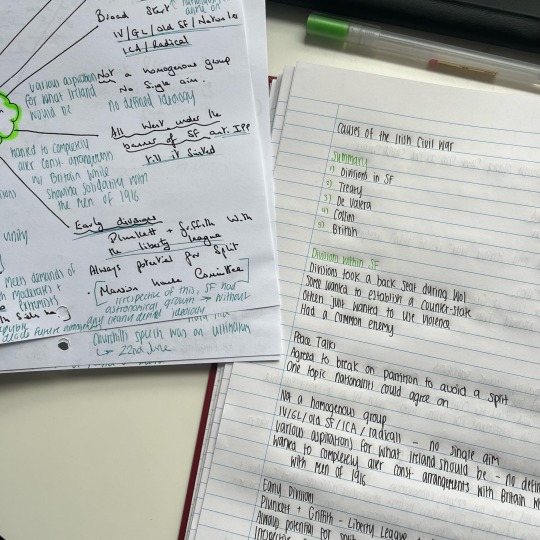 Broad Start
IV/GL/old SF/Nationals
ICA/Radical
Not a homogenous group
No single aim.
no defined ideology
various aspirations
for what Ireland
would be
All went under the
banner of SF ant. IPP
till it suited
wanted to completely
alter const. arrangements
w/ Britain while
showing solidarity with
the men of 1916
Early divisions
Plunkett + Griffith with
the liberty league
Always potential for split
Mansion house Committee
unity
meet demands of
moderates +
extremists
Irrespective of this, SF had
astronomical growth → without
any fundamental ideology
Churchill speech was an ultimatum
↳ 22nd June
Causes of the Irish Civil War
Summary
1) Divisions in SF
2) Treaty
3) De Valera
4) Collins
5) British
Division within SF
Divisions took a back seat during WoI
Some wanted to establish a counter-state
Others just wanted to use violence
Had a common enemy
Peace Talks
Agreed to break on partition to avoid a split
One topic nationalists could agree on
Not a homogenous group
IV/GL/old SF/ICA/radicals - no single aim
various aspirations for what Ireland should be - no defin
wanted to completely alter const. arrangements with Britain
with Men of 1916
Early Division
Plunkett + Griffith - Liberty League
Always potential for split
Irrespective of